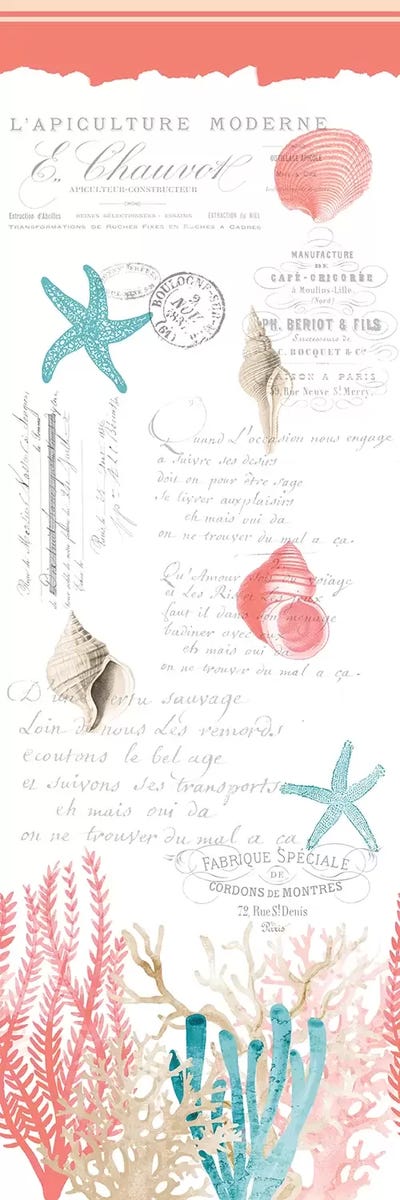 L'APICULTURE MODERNE
E. Chauvot
APICULTEUR-CONSTRUCTEUR
Extraction d'Abeilles REINES SÉLECTIONNÉES - ESSAIMS EXTRACTION DU MIEL
TRANSFORMATIONS DE RUCHES FIXES EN RUCHES A CADRES
MANUFACTURE
DE
CAFÉ-CHICORÉE
à Moulins-Lille
(Nord)
PH. BERIOT & FILS
Successeurs de
C. BOCQUET & Cº
A PARIS
Rue Neuve St. Merry.
BOULOGNE-SUR-MER
2
NOV.
(61)
Quand L'occasion nous engage
a suivre ses desirs
doit on pour être sage
se livrer aux plaisirs
eh mais oui da
on ne trouver du mal a ça.
Qu'Amour soit du voyage
et Les Ris et Les Jeux
faut il dans son menage
badiner avec eux
eh mais oui da
on ne trouver du mal a ça.
D'un vertu sauvage
Loin de nous Les remords
ecoutons le bel age
et suivons ses transports
eh mais oui da
on ne trouver du mal a ça
FABRIQUE SPÉCIALE
DE
CORDONS DE MONTRES
72, Rue St. Denis
Paris